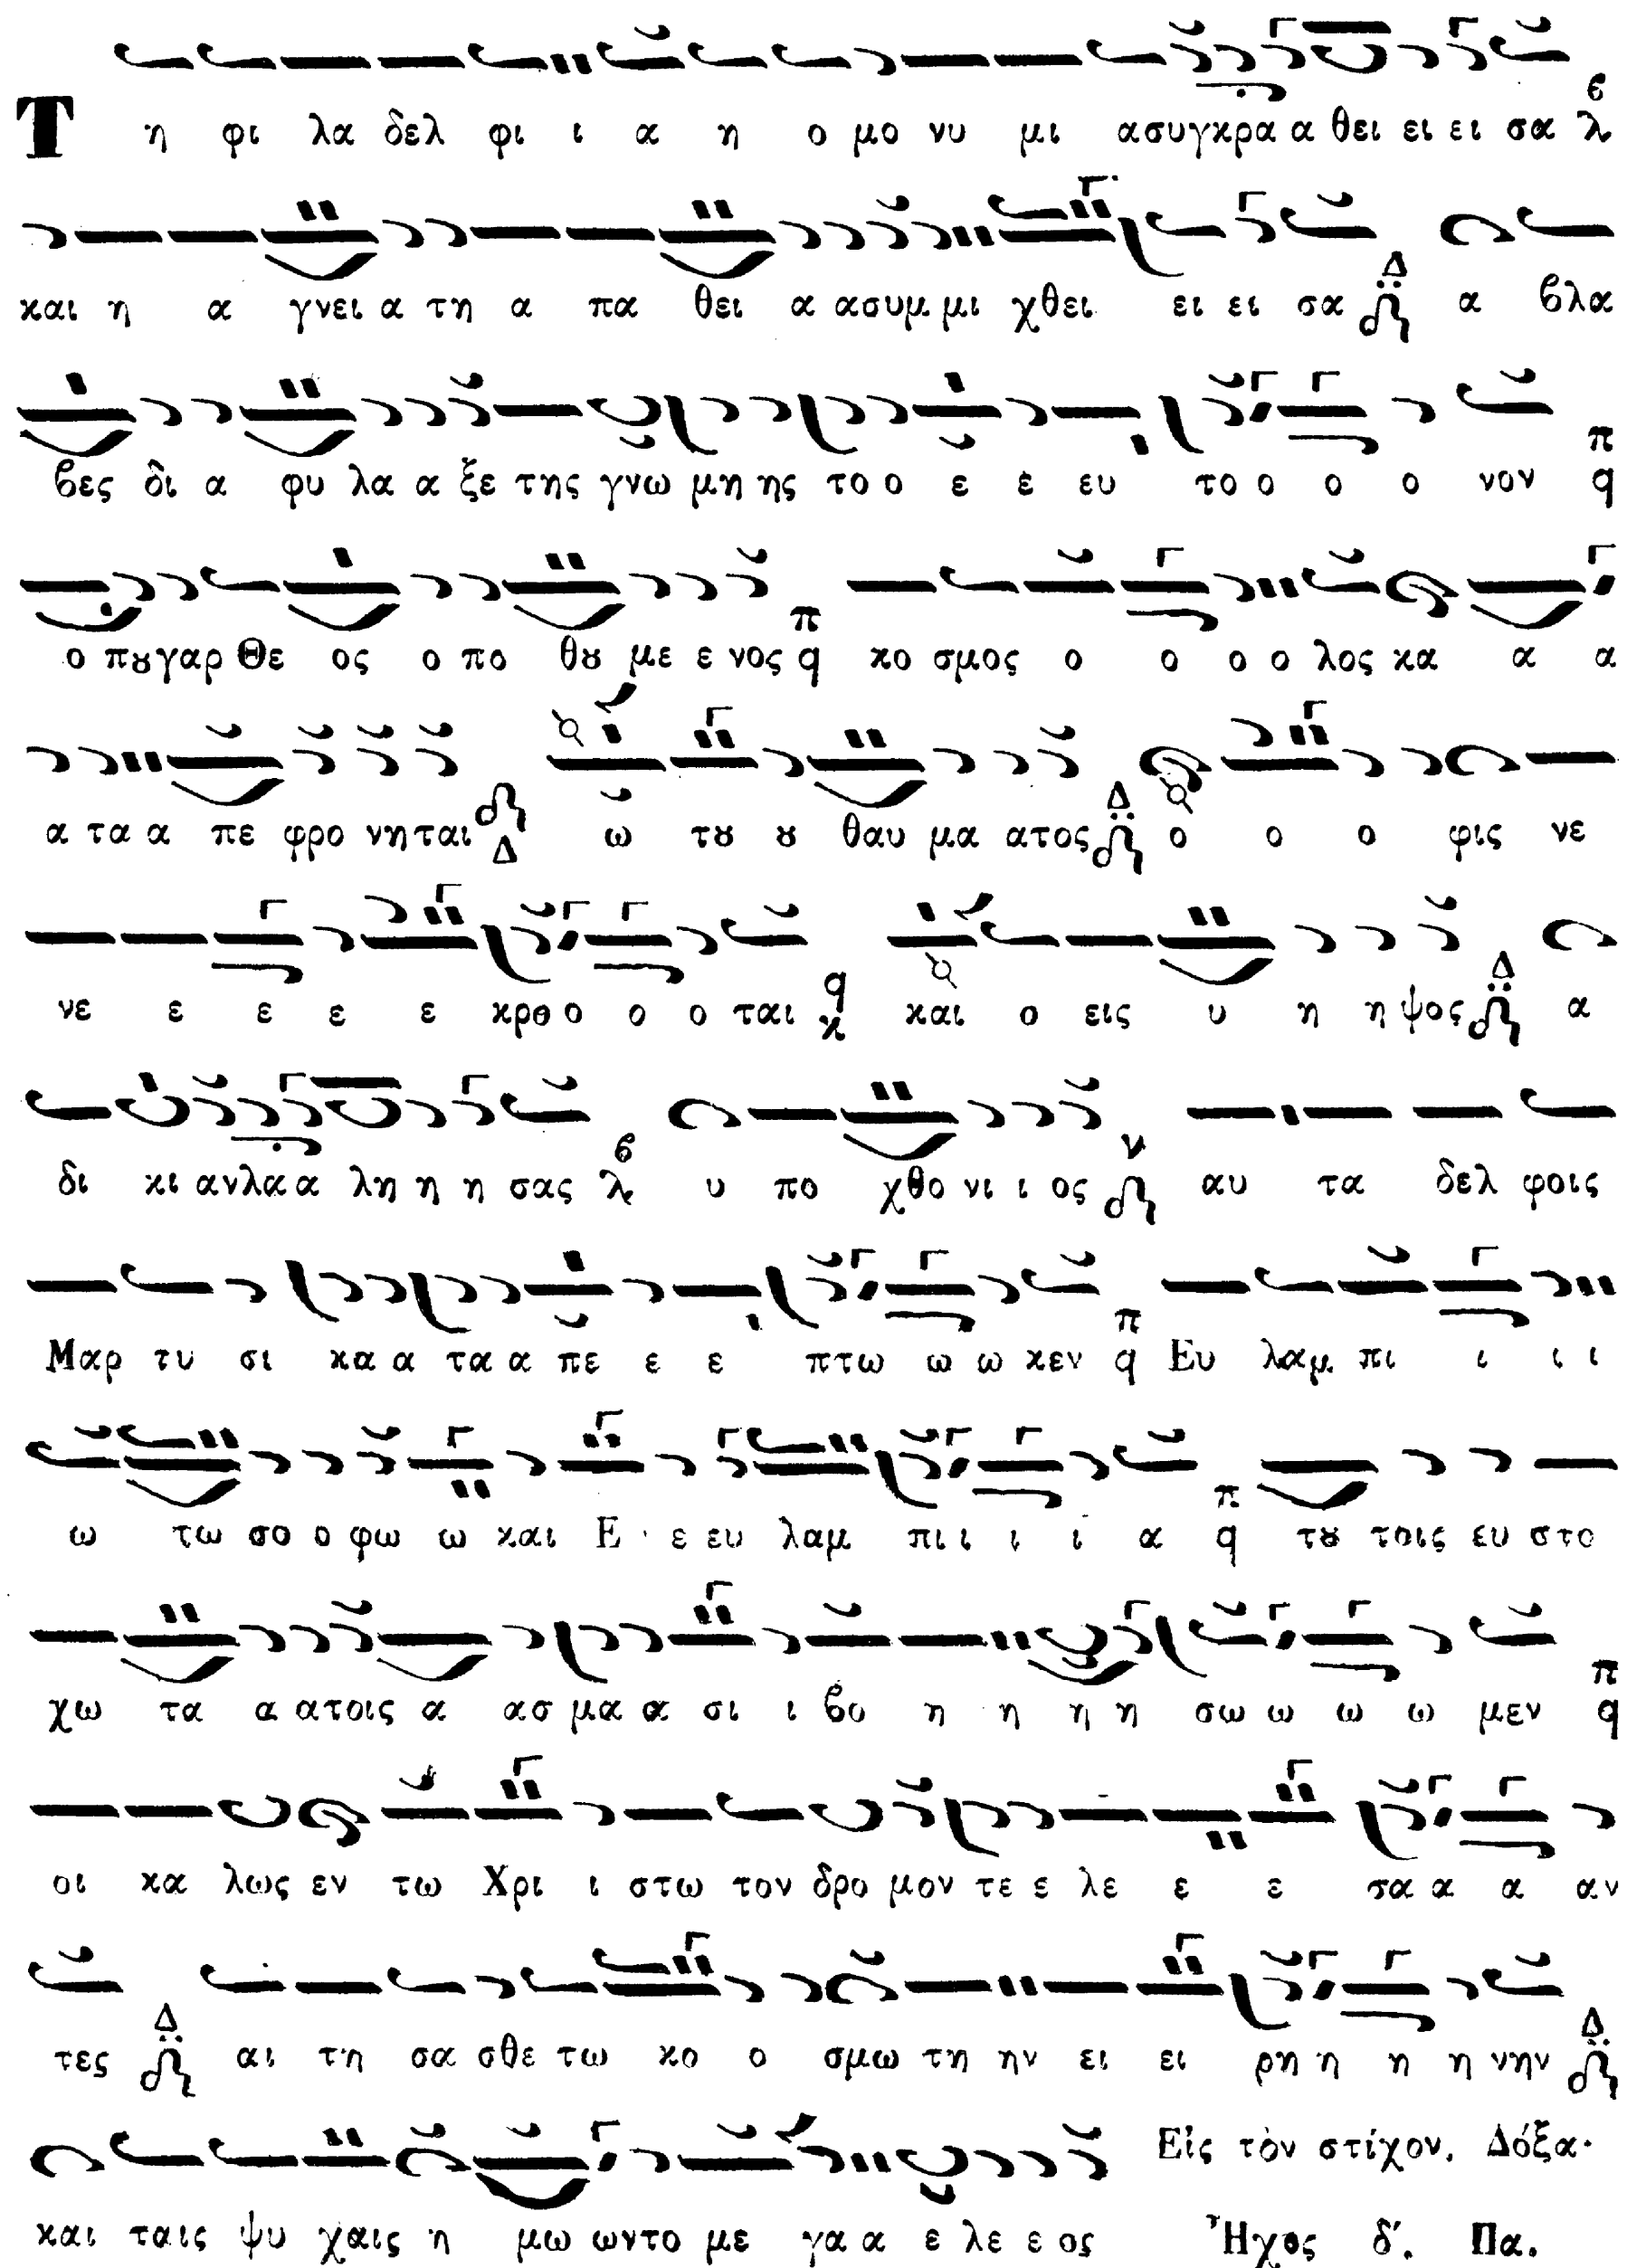 Τ η φι λα δελ φι ι α η ο μο νυ μι ασυγκρα α θει ει ει σα
και η α γνει α τη α πα θει α ασυμ μι χθει ει ει σα Δ α ϐλα
ϐες δι α φυ λα α ξε της γνω μη ης το ο ε ε ευ το ο ο ο νον π q
ο πȣ γαρ Θε ος ο πο θȣ με ε νος π q κο σμος ο ο ο ο λος κα α α
α τα α πε φρο νηται Δ ω τȣ ȣ θαυ μα ατος Δ ο ο ο φις νε
νε ε ε ε ε κρο ο ο ο ται q και ο εις υ η η ψος Δ α
δι κι ανλα α λη η η σας ϐ υ πο χθο νι ι ος ν αυ τα δελ φοις
Μαρ τυ σι κα α τα α πε ε ε πτω ω ω κεν π q Ευ λαμ πι ι ι ι
ω τω σο ο φω ω και Ε ε ευ λαμ πι ι ι ι α π q τȣ τοις ευ στο
χω τα α ατοις α ασ μα α σι ι ϐο η η η η σω ω ω ω μεν π q
οι κα λως εν τω Χρι ι στω τον δρο μον τε ε λε ε ε σα α α αν
τες Δ αι τη σα σθε τω κο ο σμω τη ην ει ει ρη η η η νην Δ
Εἰς τὸν στίχον, Δόξα·
και ταις ψυ χαις η μω ωντο με γα α ε λε ε ος Ἦχος δ΄. Πα.